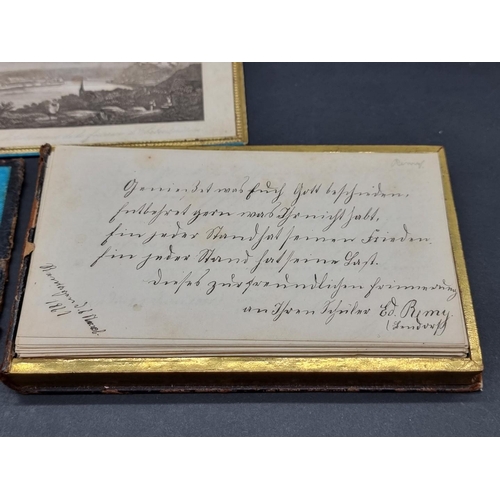 Genießet was Euch Gott beschieden,
Entbehret gern was Ihr nicht habt.
Ein jeder Stand hat seinen Frieden
Ein jeder Stand hat seine Last.
Dieses zur freundlichen Erinnerung
an Ihren Schüler Ed. Remy